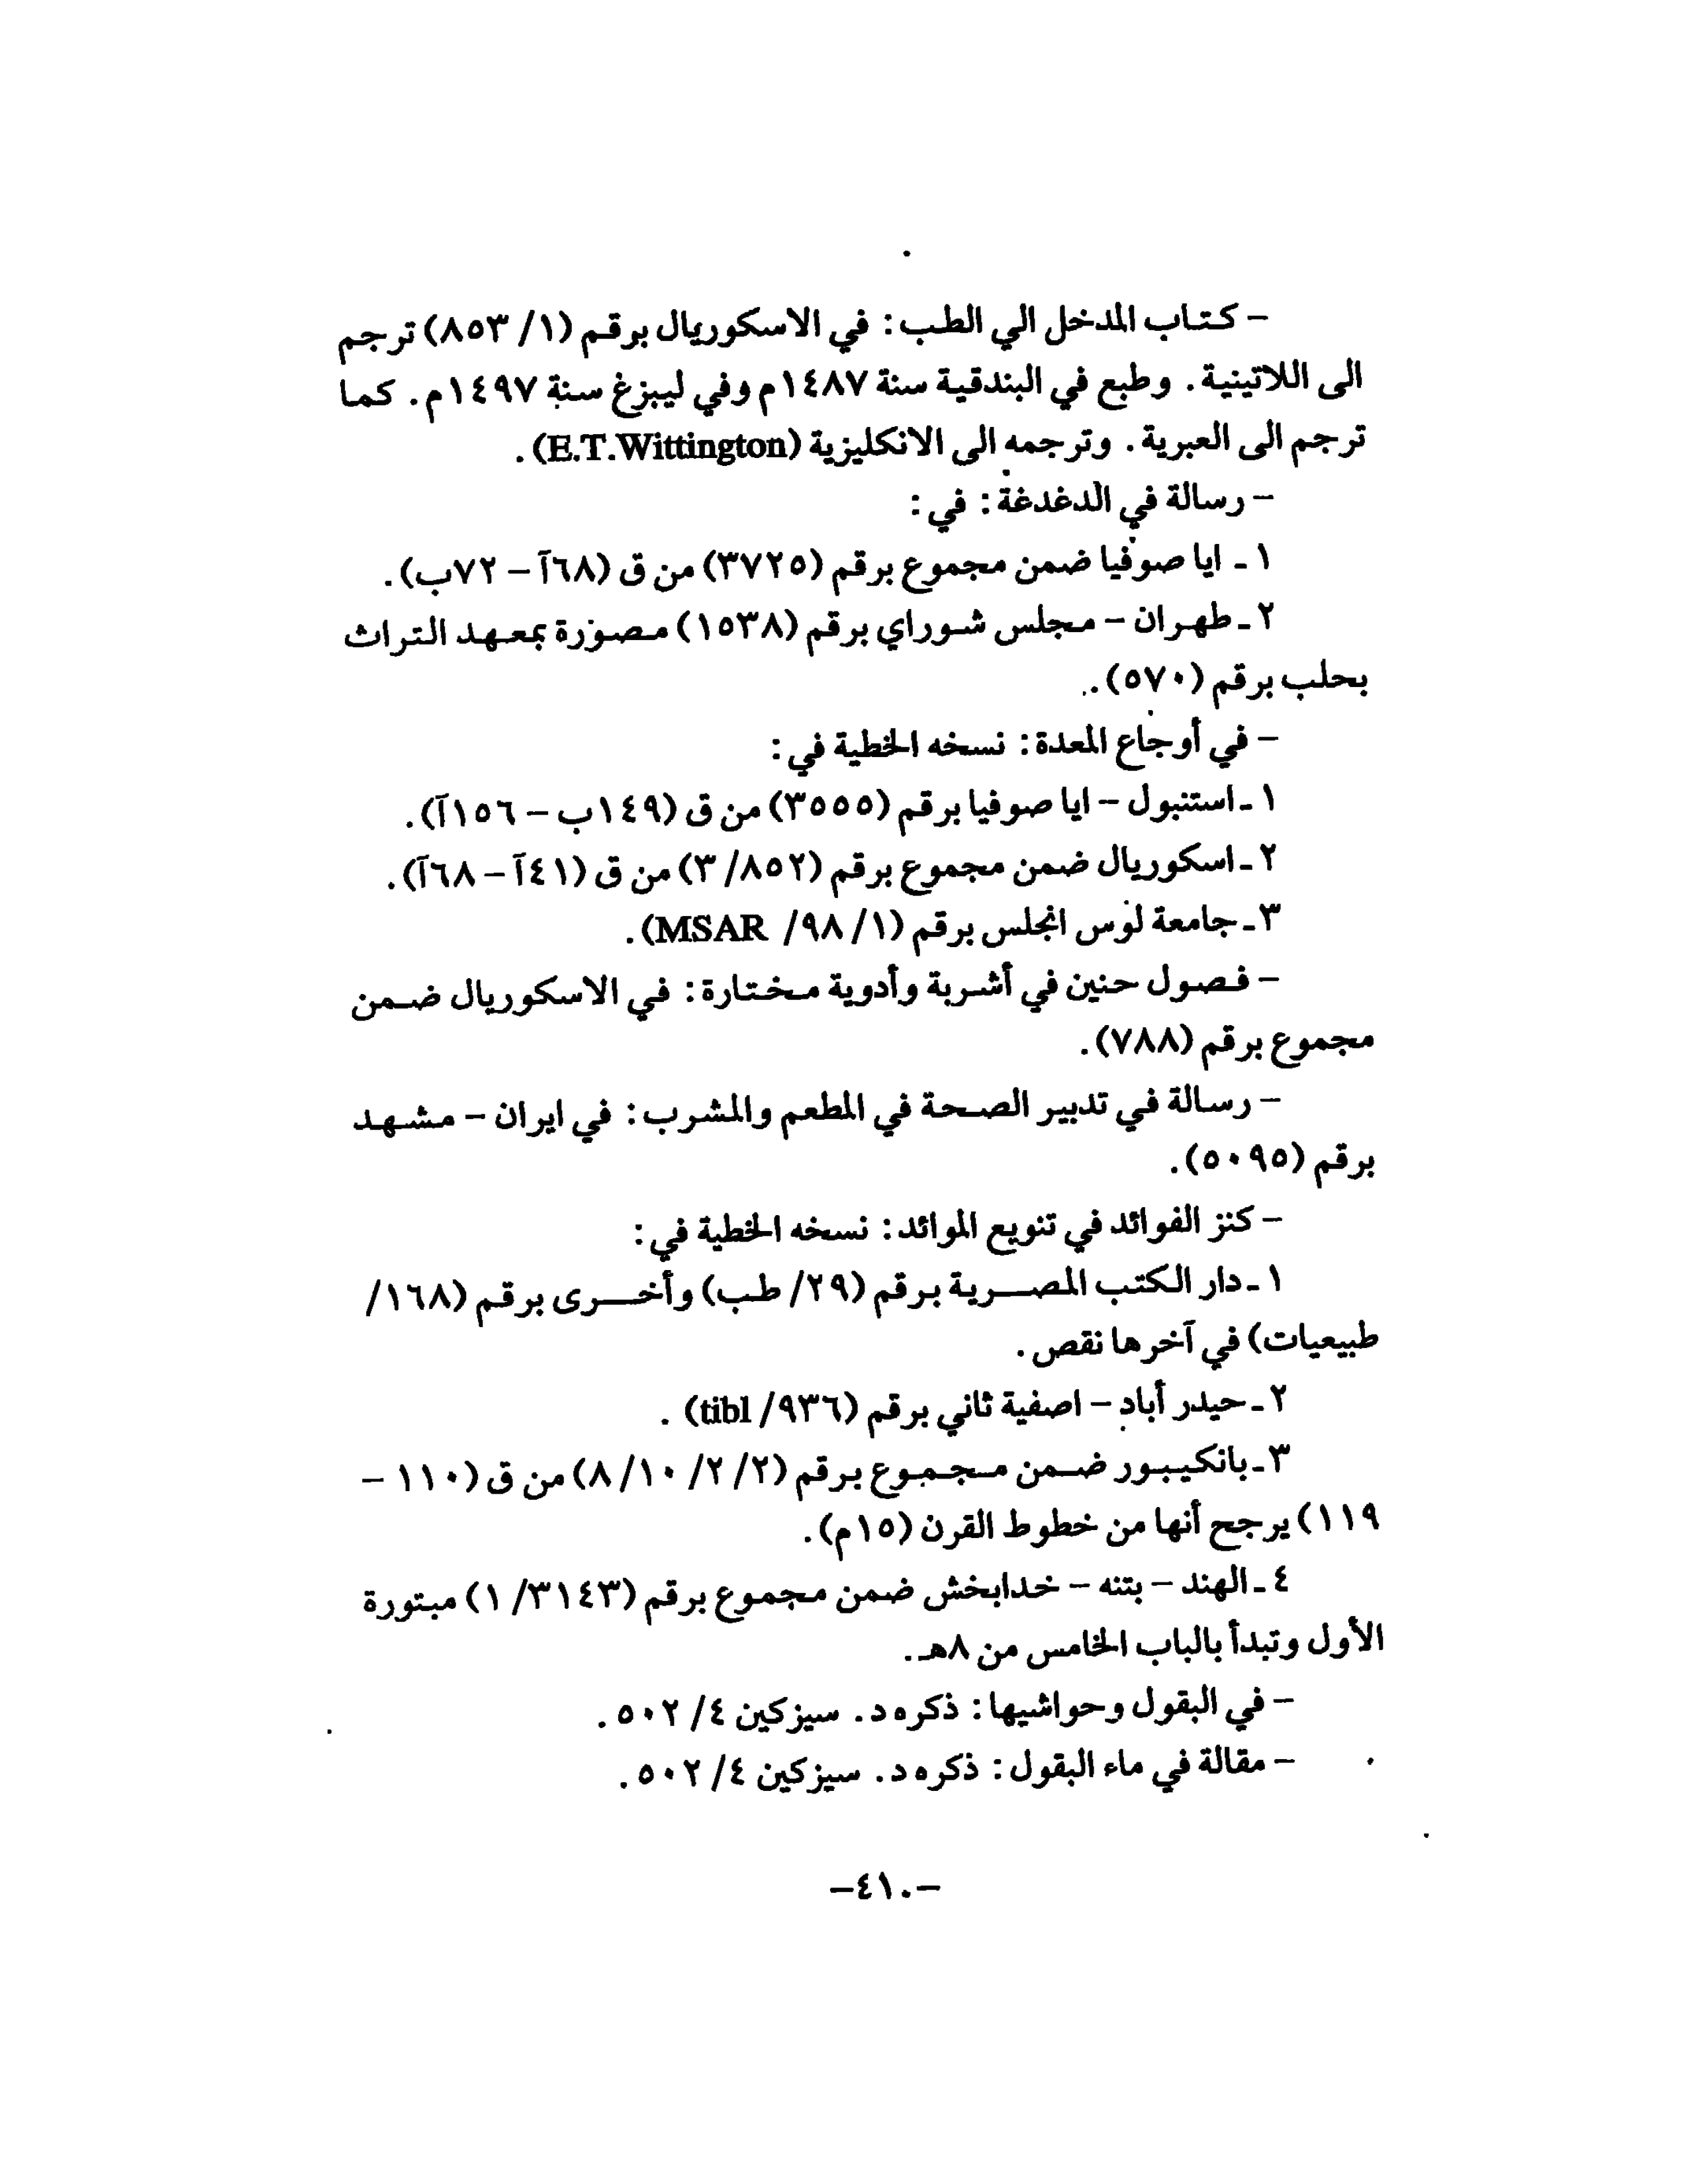 – كتاب المدخل الي الطب: في الاسكوريال برقم (١/ ٨٥٣) ترجم
الى اللاتينية. وطبع في البندقية سنة ١٤٨٧م وفي ليبزغ سنة ١٤٩٧م. كما
ترجم الى العبرية. وترجمه الى الانكليزية (E.T.Wittington).
– رسالة في الدغدغة: في:
١ـ ايا صوفيا ضمن مجموع برقم (٣٧٢٥) من ق (٦٨آ – ٧٢ب).
٢ـ طهران – مجلس شوراي برقم (١٥٣٨) مصورة بمعهد التراث
بحلب برقم (٥٧٠).
– في أوجاع المعدة: نسخه الخطية في:
١ـ استنبول – ايا صوفيا برقم (٣٥٥٥) من ق (١٤٩ب – ١٥٦آ).
٢ـ اسكوريال ضمن مجموع برقم (٨٥٢/ ٣) من ق (٤١آ – ٦٨آ).
٣ـ جامعة لوس انجلس برقم (١/ ٩٨/ MSAR).
– فصول حنين في أشربة وأدوية مختارة: في الاسكوريال ضمن
مجموع برقم (٧٨٨).
– رسالة في تدبير الصحة في المطعم والمشرب: في ايران – مشهد
برقم (٥٠٩٥).
– كنز الفوائد في تنويع الموائد: نسخه الخطية في:
١ـ دار الكتب المصرية برقم (٢٩/ طب) وأخرى برقم (١٦٨/
طبيعيات) في آخرها نقص.
٢ـ حيدر أباد – اصفية ثاني برقم (٩٣٦/ tibl).
٣ـ بانكيبور ضمن مجموع برقم (٢/ ٢/ ١٠/ ٨) من ق (١١٠ –
١١٩) يرجح أنها من خطوط القرن (١٥م).
٤ـ الهند – بتنه – خدابخش ضمن مجموع برقم (٣١٤٣/ ١) مبتورة
الأول وتبدأ بالباب الخامس من ٨هـ.
– في البقول وحواشيها: ذكره د. سيزكين ٤/ ٥٠٢.
– مقالة في ماء البقول: ذكره د. سيزكين ٤/ ٥٠٢.
–٤١٠–